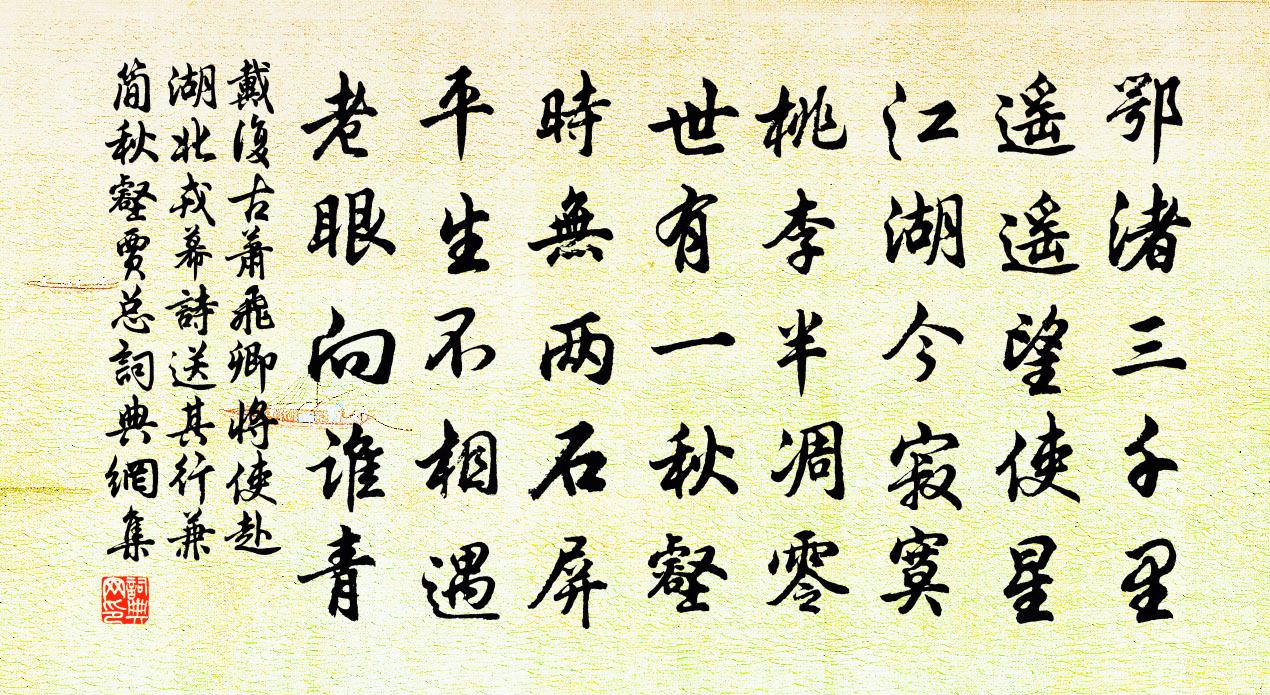 鄂渚三千里
遥遥望使星
江湖今寂寞
桃李半凋零
世有一秋壑
時無两石屏
平生不相遇
老眼向谁青
戴復古蕭飛卿將使赴
湖北戎幕詩送其行兼
简秋壑賈总詞典網集
詞典
网印